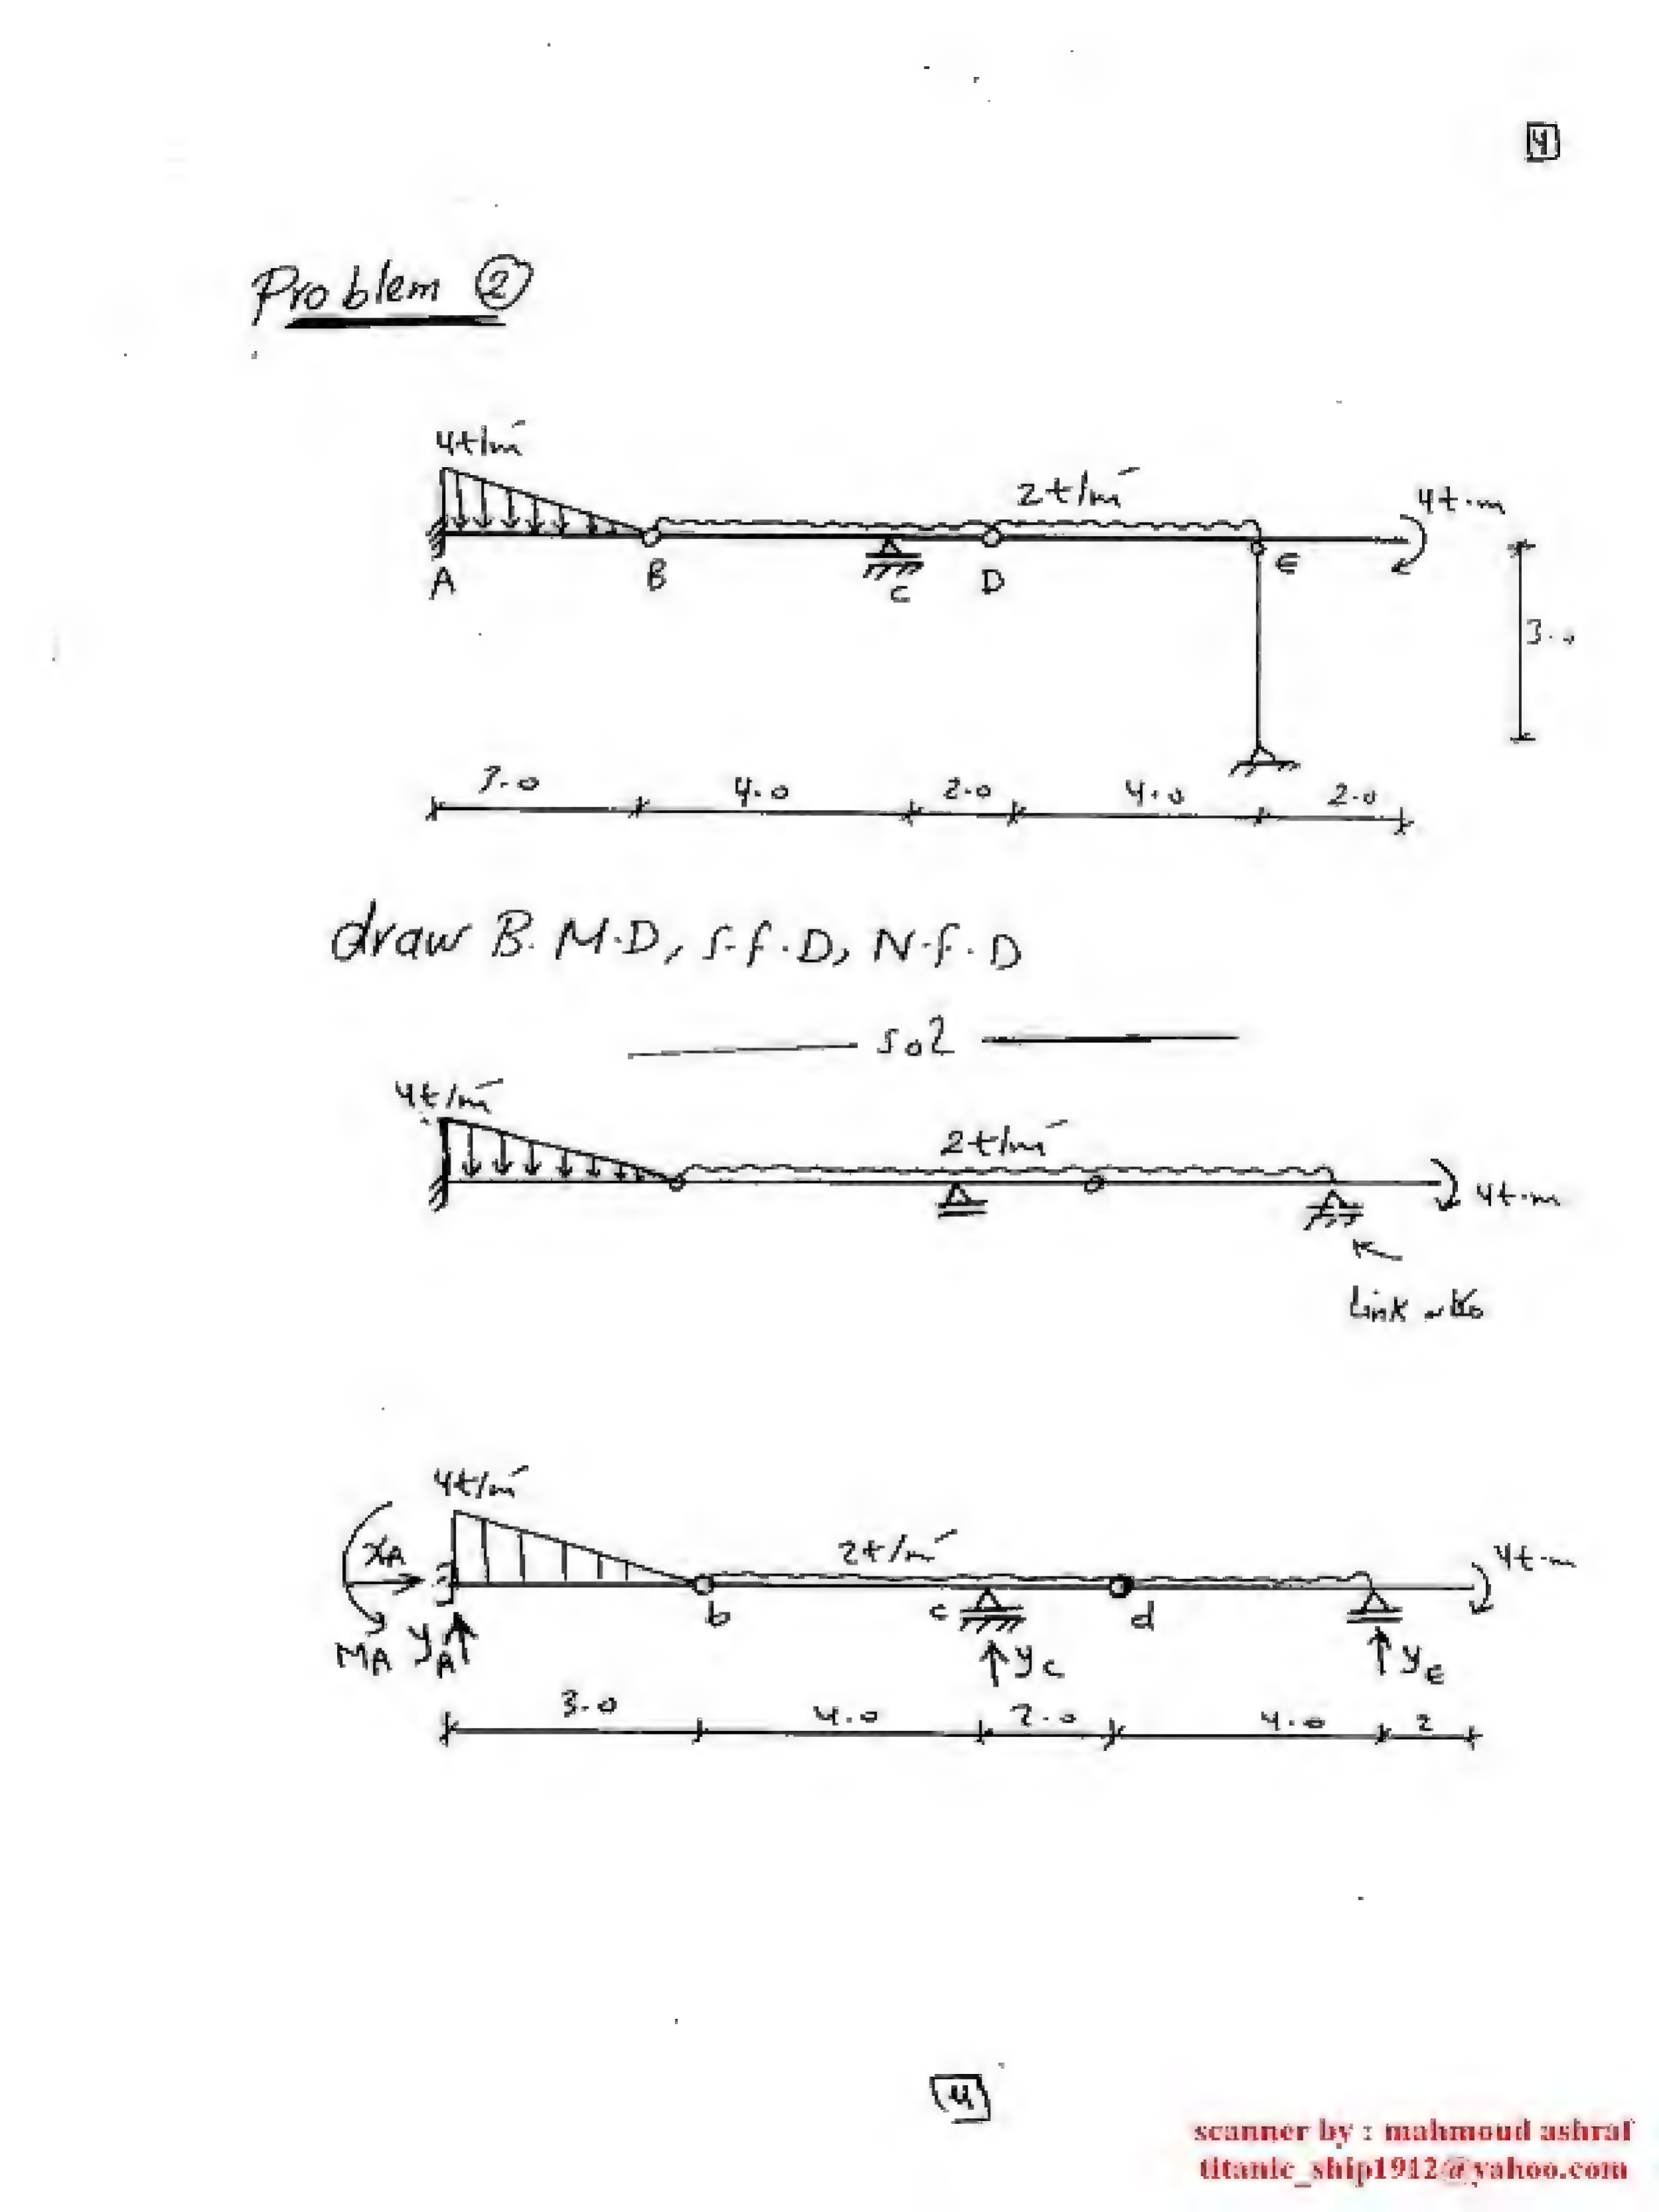 4
Problem 2
4t/m'
2t/m'
4t.m
A
B
C
D
E
3.0
3.0
4.0
2.0
4.0
2.0
draw B.M.D, S.F.D, N.F.D
sol
4t/m'
2t/m'
4t.m
Link
4t/m'
2t/m'
4t.m
XA
MA
YA
b
c
d
yc
yE
3.0
4.0
2.0
4.0
2
4
scanner by : mahmoud ashraf
titanic_ship1912@yahoo.com